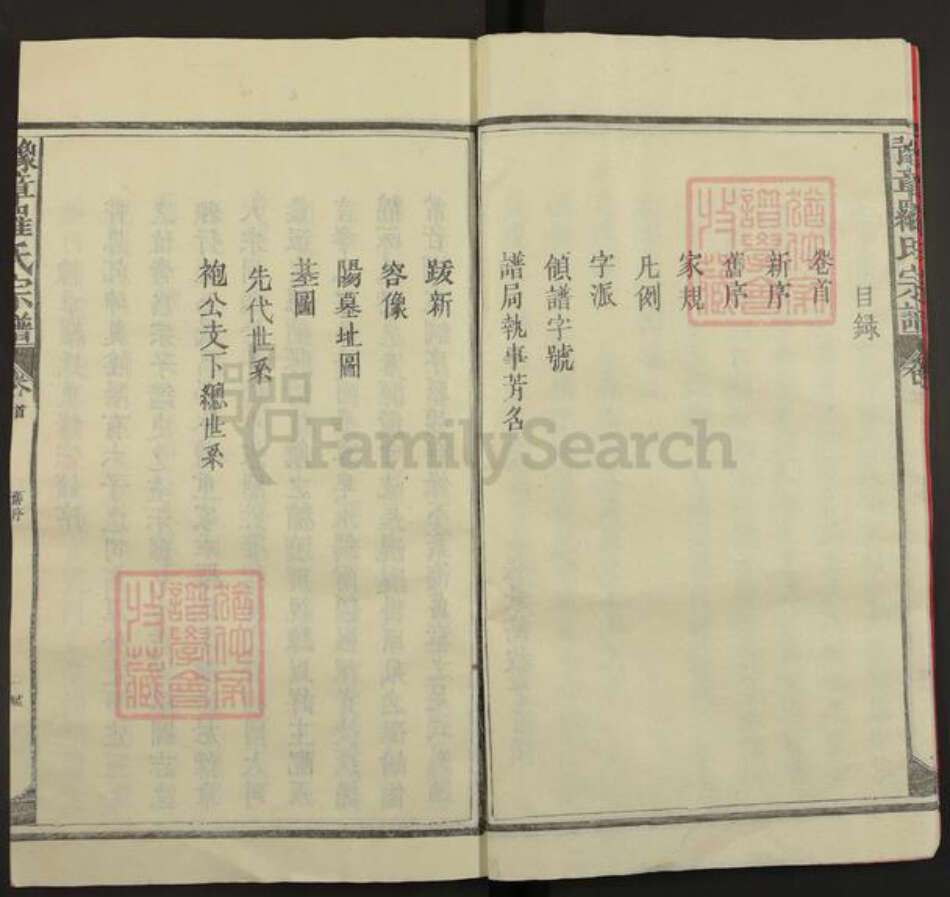 豫章羅氏宗譜
目録
卷首
新序
舊序
家規
凡例
字派
領譜字號
譜局執事芳名
跋新
容像
陽墓址圖
基圖
先代世系
袍公支下總世系
豫章羅氏宗譜
卷首
舊序
FamilySearch
譜學會
收藏